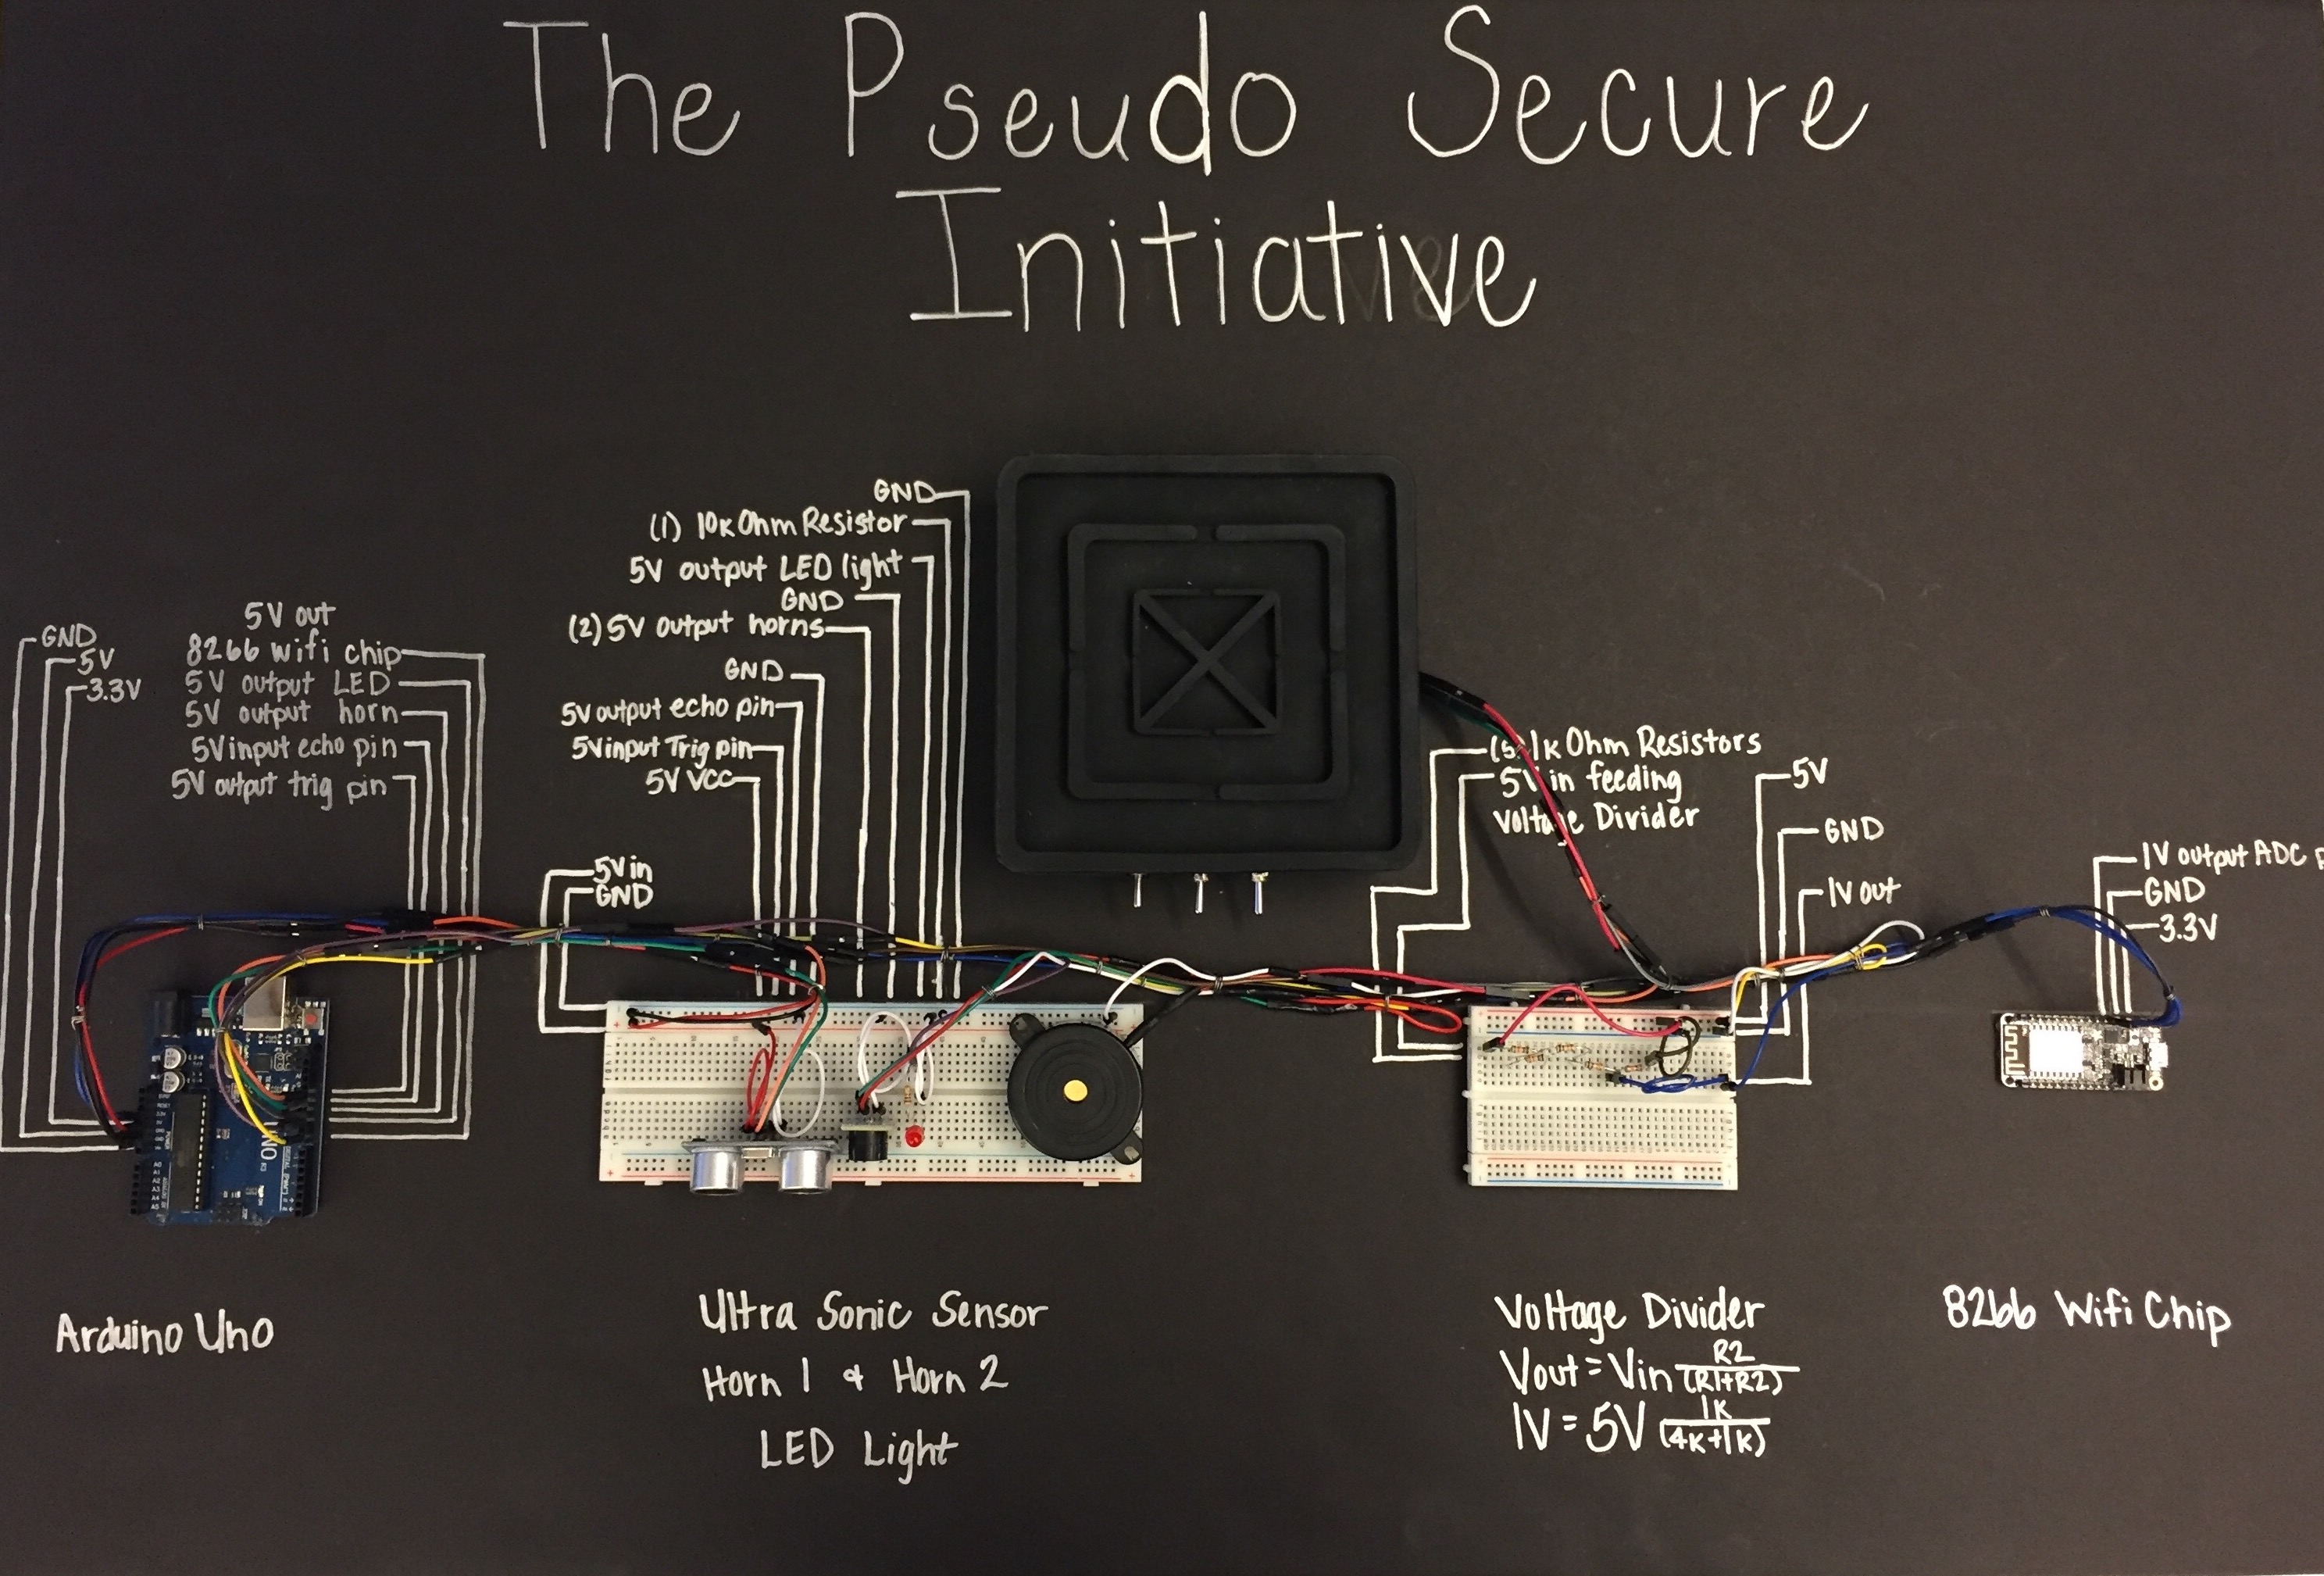 The Pseudo Secure
Initiative
GND
5V
3.3V
5V out
8266 wifi chip
5V output LED
5V output horn
5V input echo pin
5V output trig pin
GND
(1) 10K Ohm Resistor
5V output LED light
GND
(2) 5V output horns
GND
5V output echo pin
5V input Trig pin
5V VCC
5V in
GND
(5) 1K Ohm Resistors
5V in feeding
voltage Divider
5V
GND
1V out
1V output ADC
GND
3.3V
UNO
Arduino Uno
Ultra Sonic Sensor
Horn 1 & Horn 2
LED Light
Voltage Divider
Vout = Vin R2/(R1+R2)
1V = 5V 1K/(4K+1K)
8266 Wifi Chip